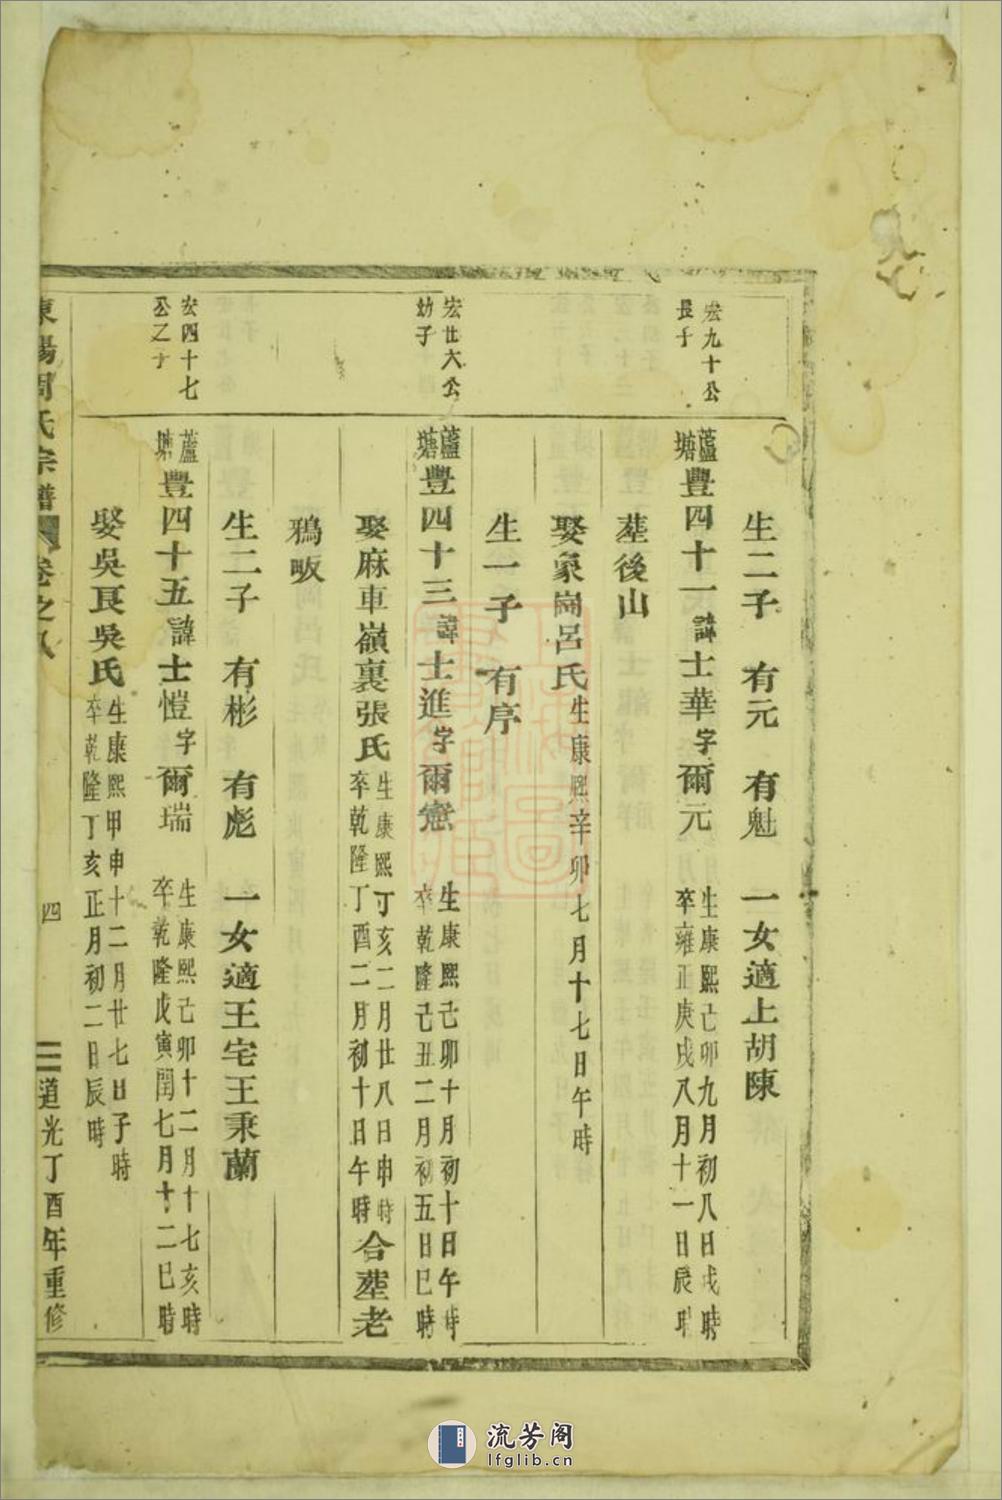 生二子 有元 有魁 一女適上胡陳
宏九十公
長子
蘆塘豐四十一諱士華字爾元 生康熙己卯九月初八日戌時
卒雍正庚戌八月十一日辰時
塟後山
娶象崗呂氏生康熙辛卯七月十七日午時
生一子 有序
宏廿六公
幼子
蘆塘豐四十三諱士進字爾憲 生康熙己卯十月初十日午時
卒乾隆己丑二月初五日巳時
娶麻車嶺裏張氏生康熙丁亥二月廿八日申時
卒乾隆丁酉二月初十日午時合塟老
鴉畈
生二子 有彬 有彪 一女適王宅王秉蘭
宏四十七
公之子
蘆塘豐四十五諱士愷字爾瑞 生康熙己卯十二月十七亥時
卒乾隆戊寅閏七月十二巳時
娶吳良吳氏生康熙甲申十二月廿七日子時
卒乾隆丁亥正月初二日辰時
東陽周氏宗譜 卷之八 四 道光丁酉年重修
流芳阁
lfglib.cn